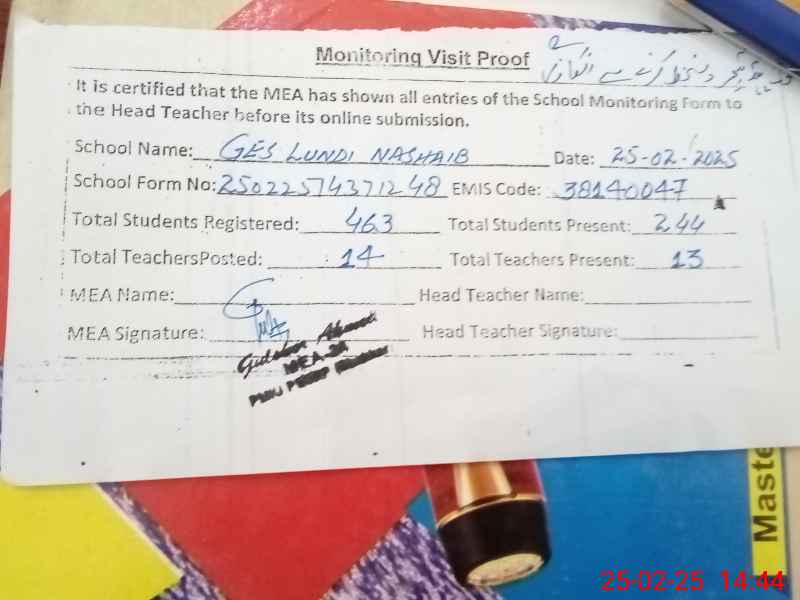 Monitoring Visit Proof
دستخط کرنے سے انکاری
It is certified that the MEA has shown all entries of the School Monitoring Form to
the Head Teacher before its online submission.
School Name: GES LUNDI NASHAIB Date: 25-02-2025
School Form No: 25022574371248 EMIS Code: 38140047
Total Students Registered: 463 Total Students Present: 244
Total TeachersPosted: 14 Total Teachers Present: 13
MEA Name: Head Teacher Name:
MEA Signature: Head Teacher Signature:
Maste
25-02-25 14:44